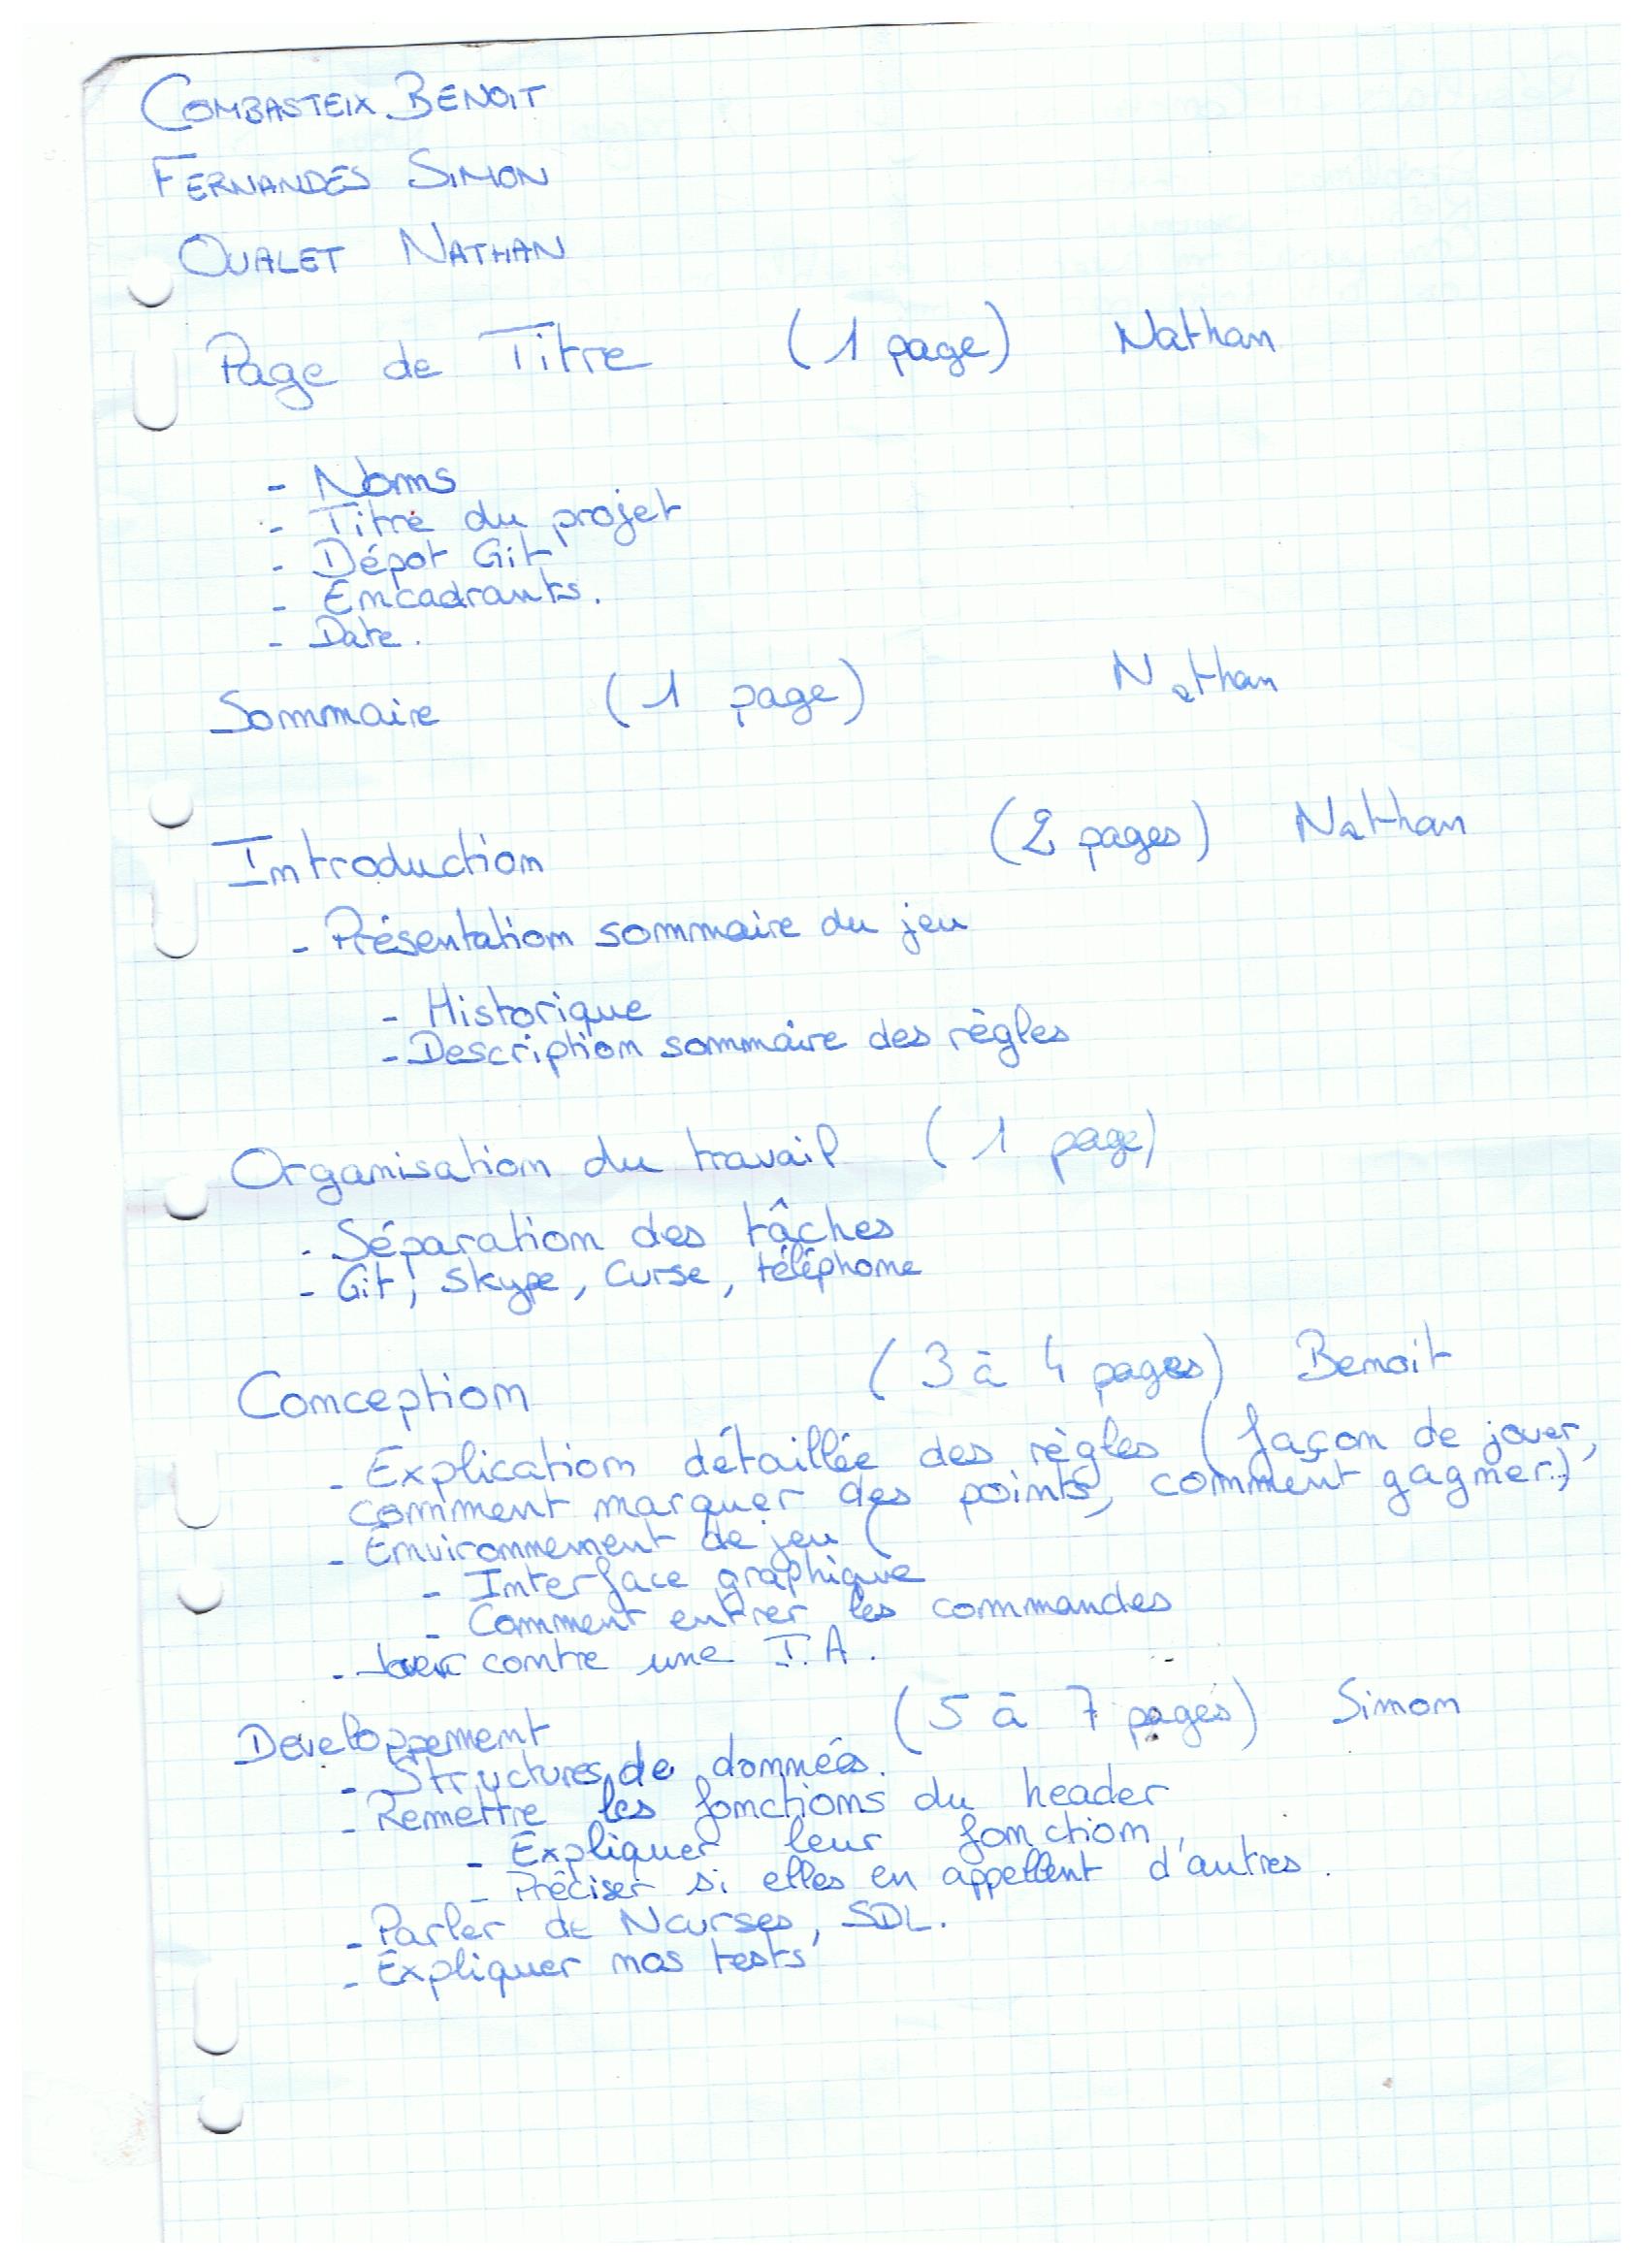 COMBASTEIX BENOIT
FERNANDES SIMON
OUALET NATHAN
Page de Titre (1 page) Nathan
- Noms
- Titre du projet
- Dépot Git
- Encadrants.
- Date.
Sommaire (1 page) Nathan
Introduction (2 pages) Nathan
- Présentation sommaire du jeu
- Historique
- Description sommaire des règles
Organisation du travail (1 page)
- Séparation des tâches
- Git, Skype, Curse, téléphone
Conception (3 à 4 pages) Benoit
- Explication détaillée des règles (façon de jouer,
comment marquer des points, comment gagner..)
- Environnement de jeu (
- Interface graphique
- Comment entrer les commandes
- Jouer contre une I.A.
Développement (5 à 7 pages) Simon
- Structures de données.
- Remettre les fonctions du header
- Expliquer leur fonction,
- Préciser si elles en appellent d'autres.
- Parler de Ncurses, SDL.
- Expliquer nos tests